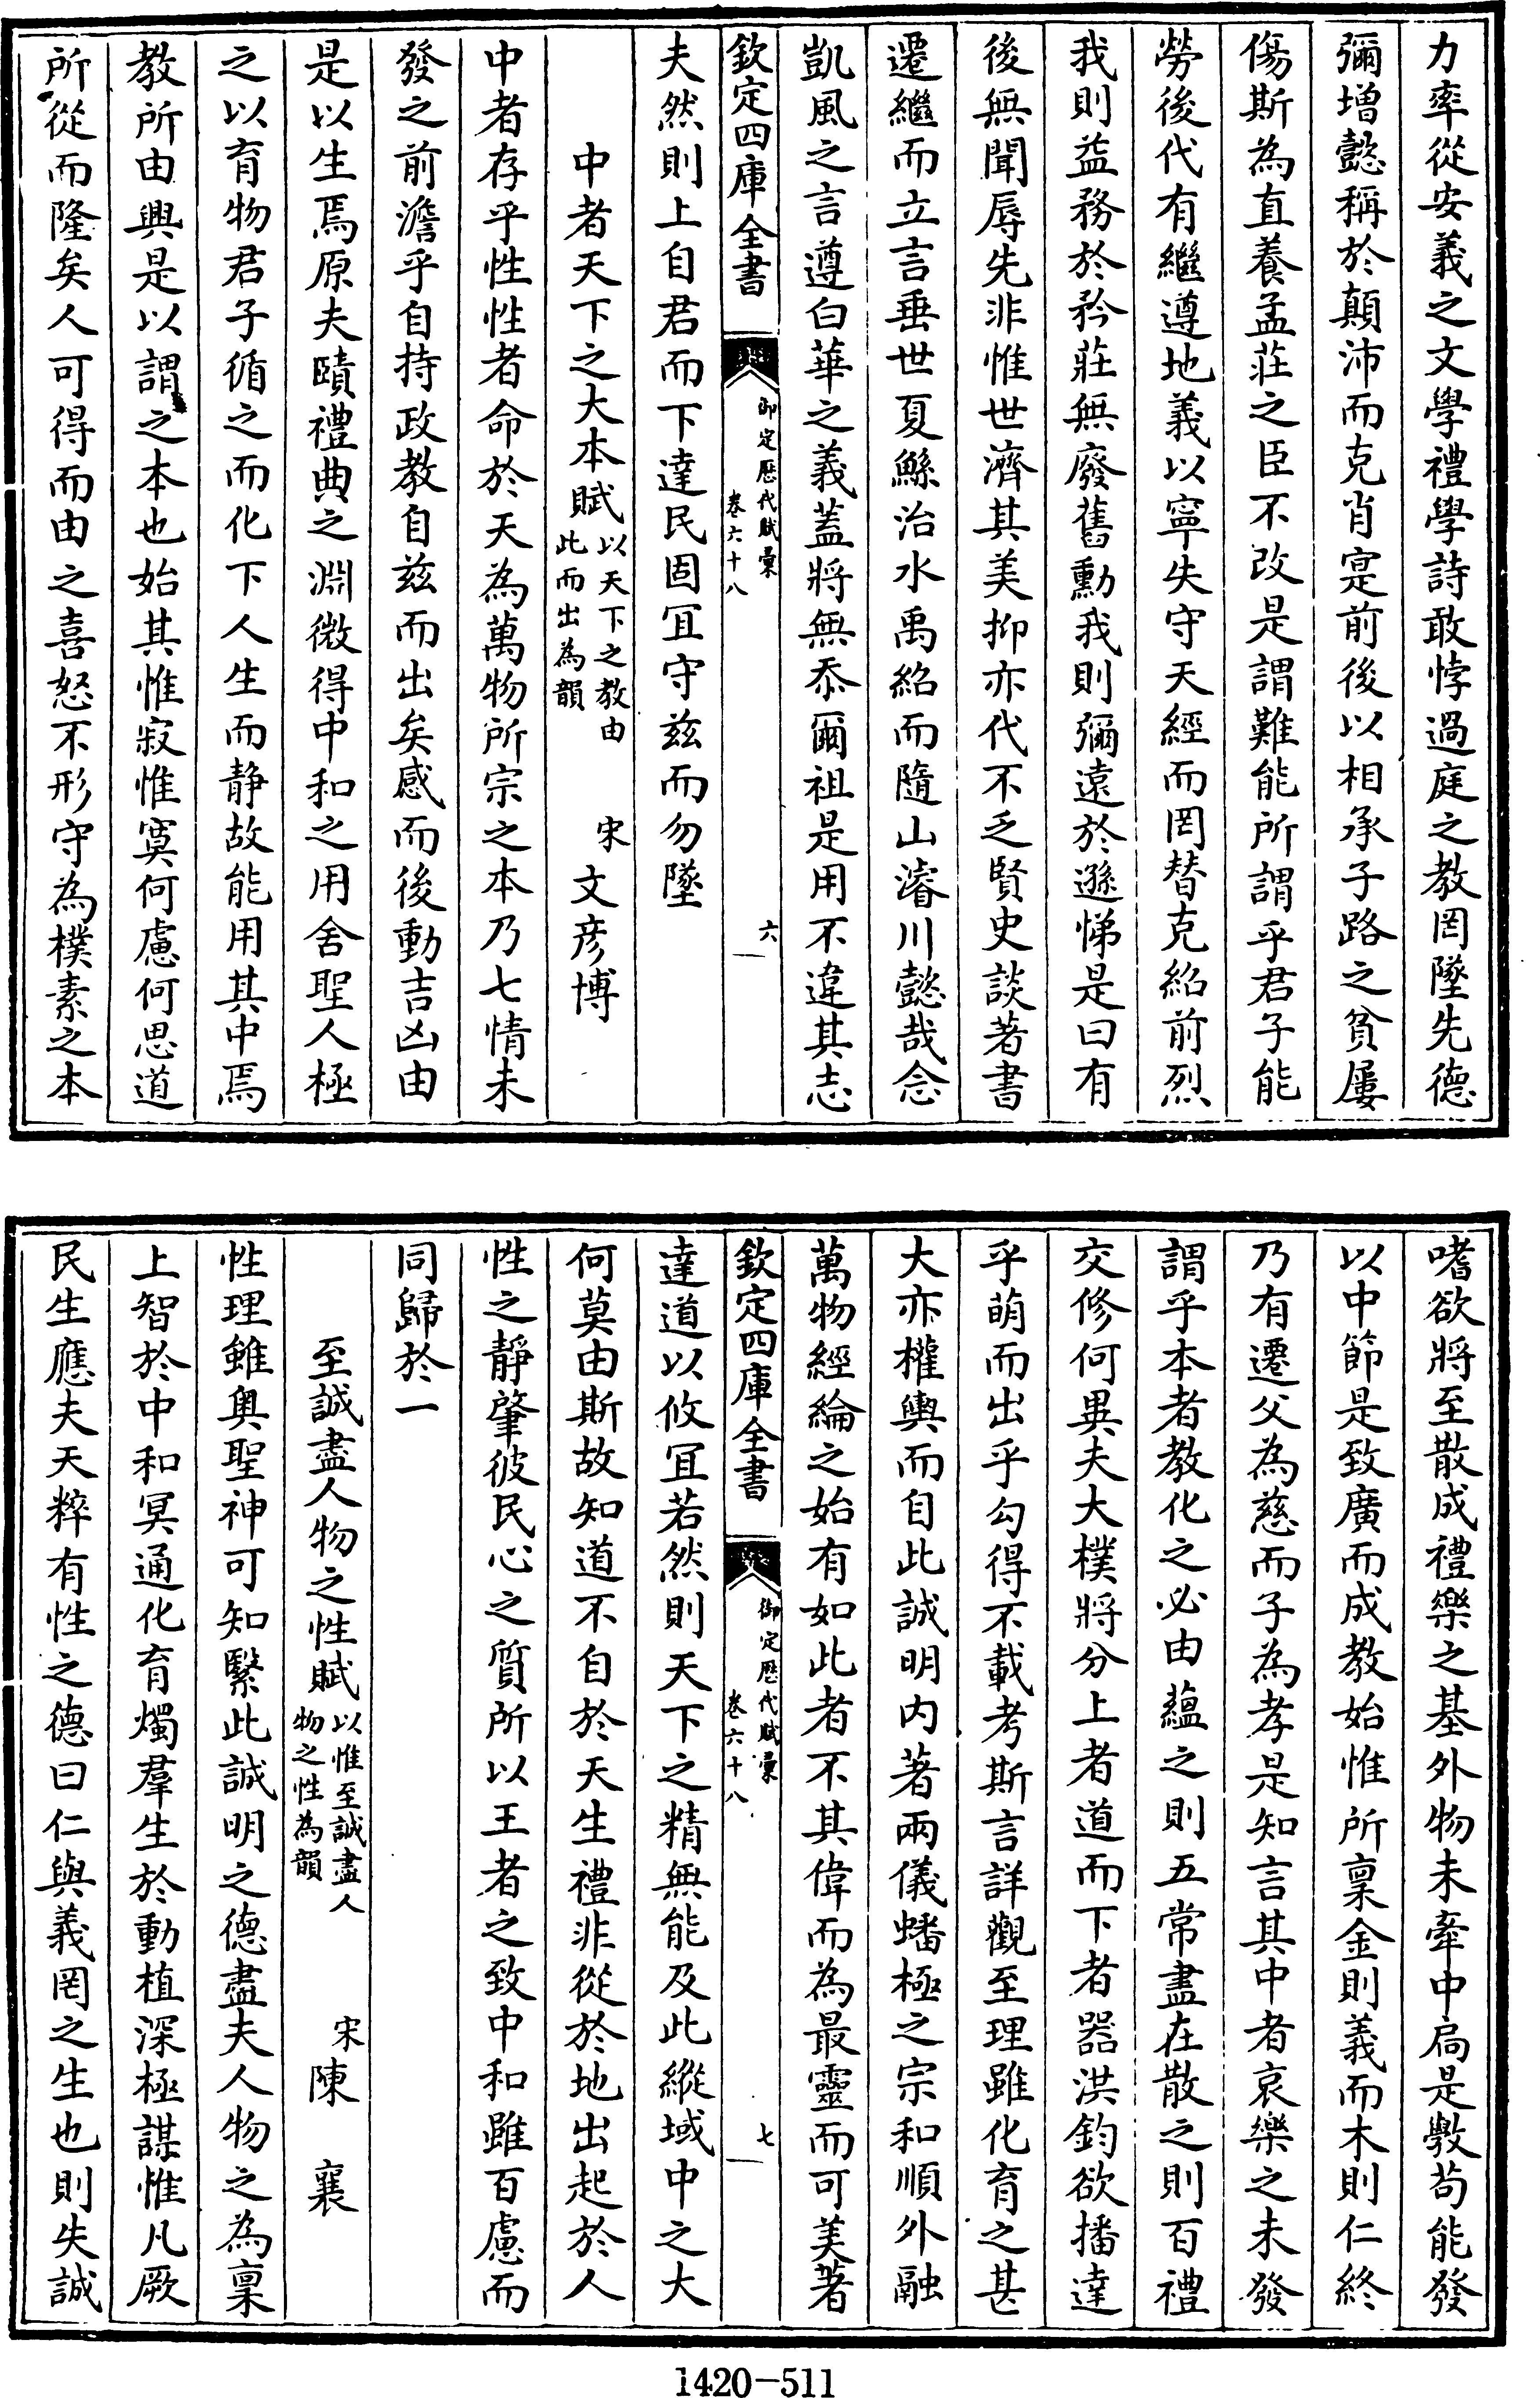 力率從安義之文學禮學詩敢悖過庭之教罔墜先德
彌增懿稱於顛沛而克肖寔前後以相承子路之貧屢
傷斯為直養孟莊之臣不改是謂難能所謂乎君子能
勞後代有繼遵地義以寧失守天經而罔替克紹前烈
我則益務於矜莊無廢舊勳我則彌遠於遜悌是曰有
後無聞辱先非惟世濟其美抑亦代不乏賢史談著書
遷繼而立言垂世夏鯀治水禹紹而隨山濬川懿哉念
凱風之言遵白華之義蓋將無忝爾祖是用不違其志
欽定四庫全書 御定歷代賦彙 卷六十八 六
夫然則上自君而下達民固冝守兹而勿墜
中者天下之大本賦 以天下之教由此而出為韻 宋 文彦博
中者存乎性性者命於天為萬物所宗之本乃七情未
發之前澹乎自持政教自兹而出矣感而後動吉凶由
是以生焉原夫賾禮典之淵微得中和之用舍聖人極
之以育物君子循之而化下人生而静故能用其中焉
教所由興是以謂之本也始其惟寂惟寞何慮何思道
所從而隆矣人可得而由之喜怒不形守為樸素之本
嗜欲將至散成禮樂之基外物未牽中扃是斅苟能發
以中節是致廣而成教始惟所稟金則義而木則仁終
乃有遷父為慈而子為孝是知言其中者哀樂之未發
謂乎本者教化之必由蘊之則五常盡在散之則百禮
交修何異夫大樸將分上者道而下者器洪鈞欲播達
乎萌而出乎勾得不載考斯言詳觀至理雖化育之甚
大亦權輿而自此誠明内著兩儀蟠極之宗和順外融
萬物經綸之始有如此者不其偉而為最靈而可美著
欽定四庫全書 御定歷代賦彙 卷六十八 七
達道以攸冝若然則天下之精無能及此縱域中之大
何莫由斯故知道不自於天生禮非從於地出起於人
性之靜肇彼民心之質所以王者之致中和雖百慮而
同歸於一
至誠盡人物之性賦 以惟至誠盡人物之性為韻 宋 陳襄
性理雖奥聖神可知繄此誠明之德盡夫人物之為稟
上智於中和冥通化育燭羣生於動植深極謀惟凡厥
民生應夫天粹有性之德曰仁與義罔之生也則失誠
1420-511